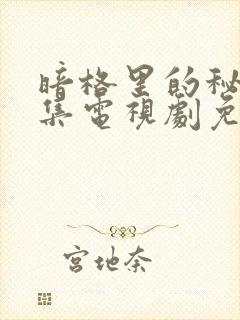 暗格里的秘
集電視劇免
宮地奈